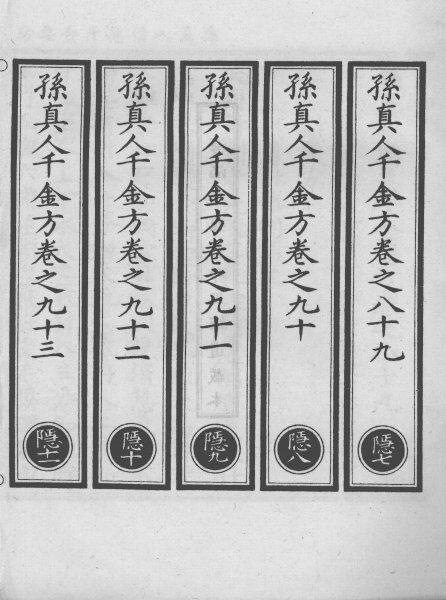 孫真人千金方卷之八十九
隱七
孫真人千金方卷之九十
隱八
孫真人千金方卷之九十一
隱九
孫真人千金方卷之九十二
隱十
孫真人千金方卷之九十三
隱十一